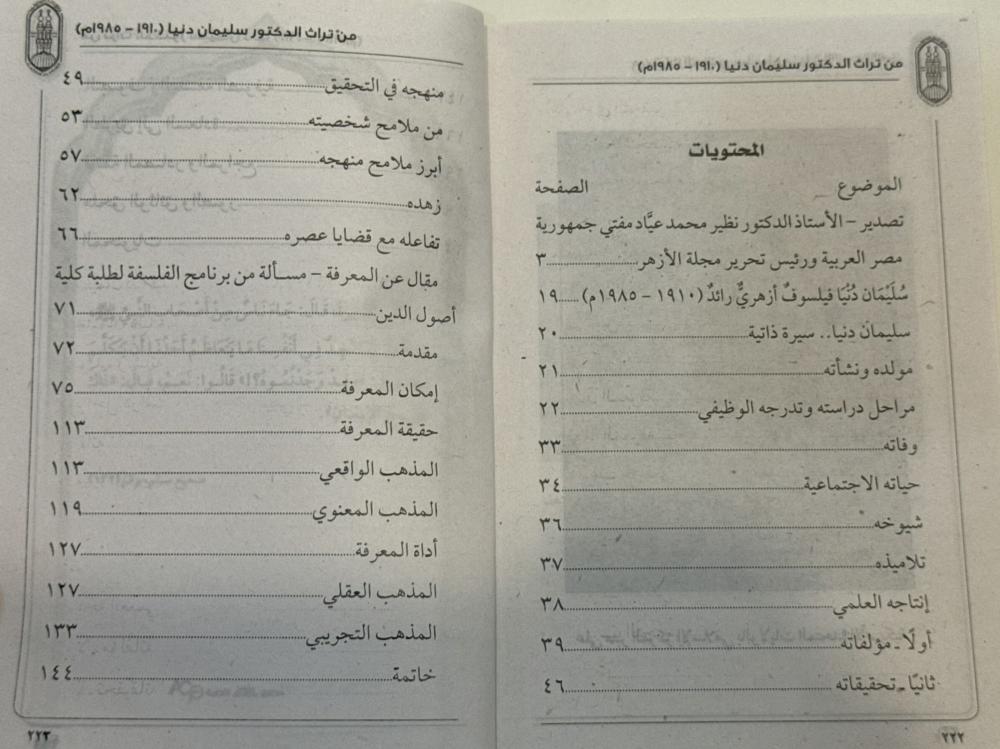 من تراث الدكتور سليمان دنيا (١٩١٠ – ١٩٨٥م)
المحتويات
الموضوع الصفحة
تصدير – الأستاذ الدكتور نظير محمد عيَّاد مفتي جمهورية
مصر العربية ورئيس تحرير مجلة الأزهر ٣
سُلَيْمَان دُنْيَا فيلسوفٌ أزهريٌّ رائدٌ (١٩١٠ – ١٩٨٥م) ١٩
سليمان دنيا.. سيرة ذاتية ٢٠
مولده ونشأته ٢١
مراحل دراسته وتدرجه الوظيفي ٢٢
وفاته ٣٣
حياته الاجتماعية ٣٤
شيوخه ٣٦
تلاميذه ٣٧
إنتاجه العلمي ٣٨
أولًا ـ مؤلفاته ٣٩
ثانيًا ـ تحقيقاته ٤٦
٢٢٢
من تراث الدكتور سليمان دنيا (١٩١٠ – ١٩٨٥م)
منهجه في التحقيق ٤٩
من ملامح شخصيته ٥٣
أبرز ملامح منهجه ٥٧
زهده ٦٢
تفاعله مع قضايا عصره ٦٦
مقال عن المعرفة – مسألة من برنامج الفلسفة لطلبة كلية
أصول الدين ٧١
مقدمة ٧٢
إمكان المعرفة ٧٥
حقيقة المعرفة ١١٣
المذهب الواقعي ١١٣
المذهب المعنوي ١١٩
أداة المعرفة ١٢٧
المذهب العقلي ١٢٧
المذهب التجريبي ١٣٣
خاتمة ١٤٤
٢٢٣